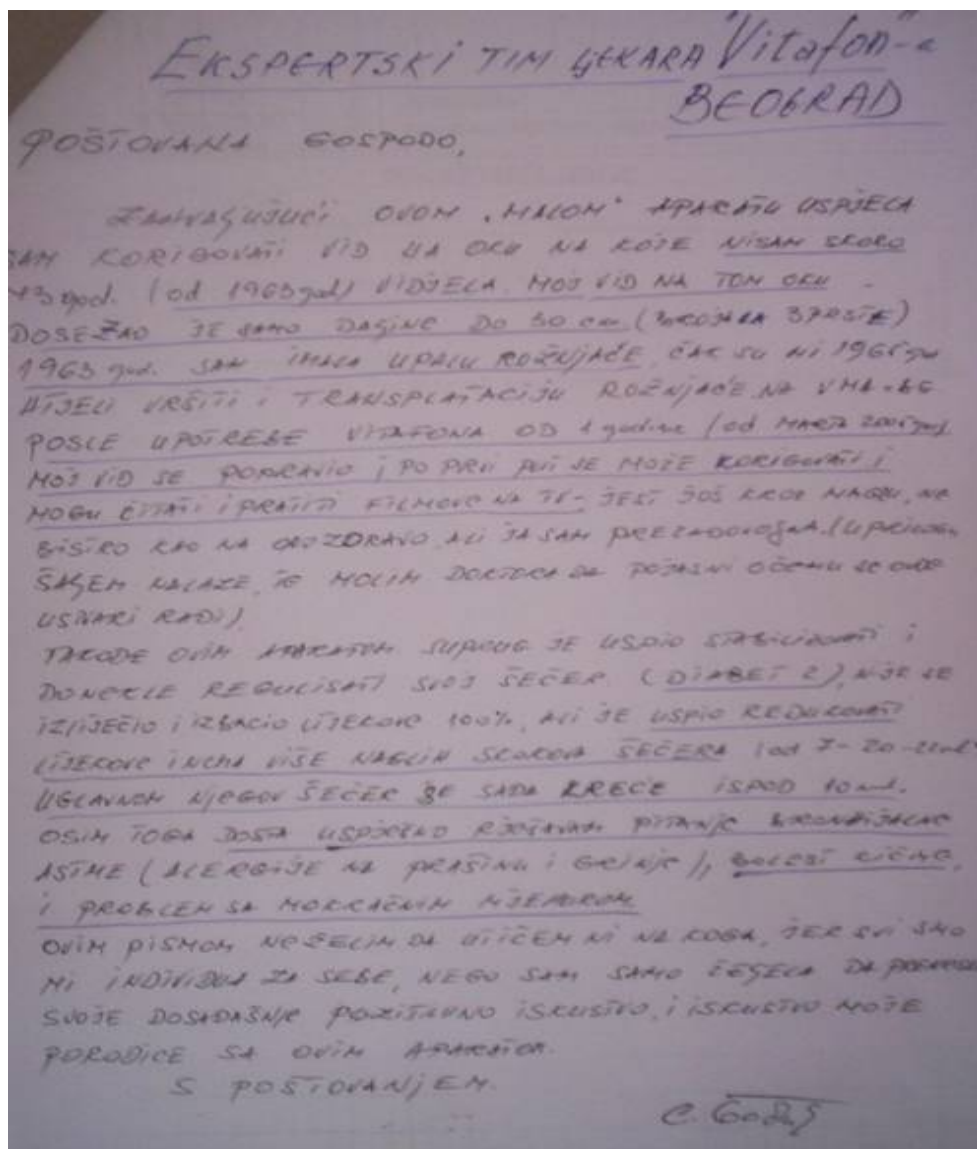 EKSPERTSKI TIM LJEKARA "Vitafon-a
BEOGRAD
POŠTOVANA GOSPODO,
ZAHVALJUJUĆI OVOM "MALOM" APARATU USPJELA
SAM KORIGOVATI VID NA OKU NA KOJE NISAM SKORO
43 god. (od 1963 god) VIDJELA. MOJ VID NA TOM OKU
DOSEŽAO JE SAMO DALJINE DO 30 cm (BROJALA 3 PRSTE)
1963 god. SAM IMALA UPALU ROŽNJAČE, ČAK SU MI 1965 god
HTJELI VRŠITI I TRANSPLATACIJU ROŽNJAČE NA VMA-BG
POSLE UPOTREBE VITAFONA OD 1 godine (od MARTA god)
MOJ VID SE POPRAVIO I PO PRVI PUT SE MOŽE KORIGOVATI I
MOGU ČITATI I PRATITI FILMOVE NA TV- JEST JOŠ KROZ MAGLU, NE
BISTRO KAO NA OVO ZDRAVO, ALI JA SAM PREZADOVOLJNA. (U PRILOGU
ŠALJEM NALAZE, TE MOLIM DOKTORA DA POJASNI O ČEMU SE OVDE
USTVARI RADI)
TAKOĐE OVIM APARATOM SUPRUG JE USPIO STABILIZOVATI I
DONEKLE REGULISATI SVOJ ŠEĆER (DIABET 2), NIJE SE
IZLIJEČIO I IZBACIO LIJEKOVE 100%, ALI JE USPIO REDUKOVATI
LIJEKOVE I NEMA VIŠE NAGLIH SKOKOVA ŠEĆERA (od 7-20
UGLAVNOM NJEGOV ŠEĆER SE SADA KREĆE ISPOD 10
OSIM TOGA DOSTA USPJEŠNO RJEŠAVAM PITANJE BRONHIJALNE
ASTME (ALERGIJE NA PRAŠINU I GRINJE), BOLEST KIČME,
I PROBLEM SA MOKRAĆNIM MJEHUROM
OVIM PISMOM NE ŽELIM DA UTIČEM NI NA KOGA, JER SVI SMO
MI INDIVIDUA ZA SEBE, NEGO SAM SAMO ŽELJELA DA PRENESEM
SVOJE DOSADAŠNJE POZITIVNO ISKUSTVO, I ISKUSTVO MOJE
PORODICE SA OVIM APARATOM.
S POŠTOVANJEM.